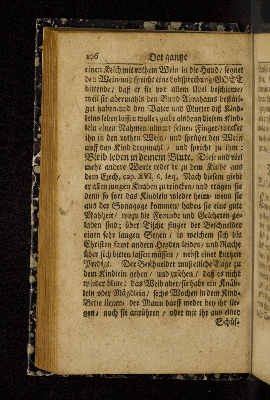 106 Der gantze
einen Kelch mit rothem Wein in die Hand / segnet
den Wein und spricht eine Lobsprechung / GOTT
bittende / daß er sie vor allem Übel beschirme /
weil sie abermahls den Bund Abrahams bestäti-
get haben und den Vater und Mutter diß Kind-
leins leben lassen wolle ; giebet alsdenn diesem Kind-
lein einen Nahmen / nimmt seinen Finger / tuncket
ihn in den rothen Wein / und sprützet den Wein
auff das Kind dreymahl / und spricht zu ihm :
Bleib leben in deinem Blute. Diese und viel
mehr andere Worte redet er zu dem Kinde aus
dem Ezech. cap. XVI. 6. seq. Nach diesem giebt
er allen jungen Knaben zu trincken / und tragen sie
denn so fort das Kindlein wieder heim wenn sie
aus der Synagoge kommen / haben sie eine gute
Mahlzeit / wozu die Freunde und Gelehrten ge-
laden sind ; über Tische singet der Beschneider
einen sehr langen Segen / in welchem sich die
Christen samt andern Heyden leiden / und Rache
über sich bitten lassen müssen / nebst einer kurtzen
Predigt. Der Beschneider muß etliche Tage zu
dem Kindlein gehen / und zusehen / daß es nicht
wieder blute ; das Weib aber / sie habe ein Knäb-
lein oder Mägdlein / sechs Wochen in dem Kind-
Bette liegen / der Mann darff weder bey ihr lie-
gen / noch sie anrühren / oder mit ihr aus einer
Schüs-